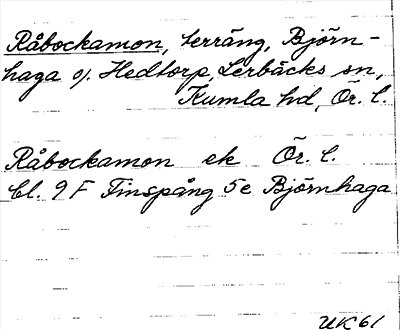 Råbockamon, terräng, Björn-
haga o. Hedtorp, Lerbäcks sn,
Kumla hd, Ör. l.
Råbockamon ek Ör. l.
bl. 9 F Finspång 5e Björnhaga
UK 61